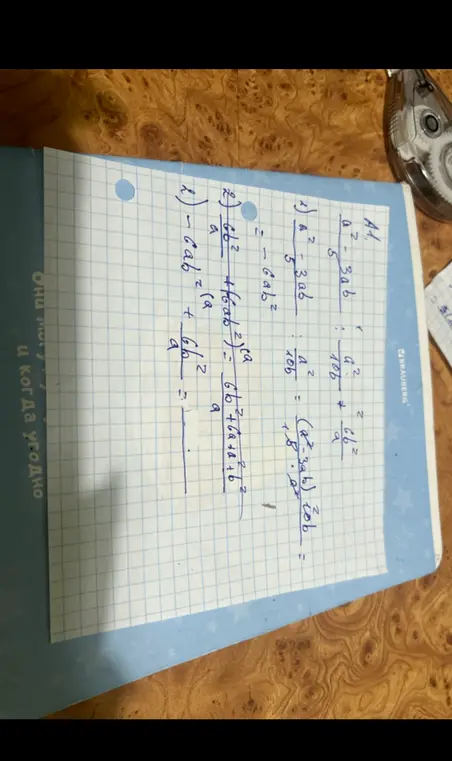 A1
(a² - 3ab)/5 : a²/10b + 6b²/a
1) (a² - 3ab)/5 : a²/10b = ((a² - 3ab) · 10b)/(5 · a²) =
= - 6ab²
2) 6b²/a + (6ab²)^(a = (6b² + 6a + a² + b²)/a
2) - 6ab² ^(a + 6b²/a =
BRAUBERG
и когда угодно